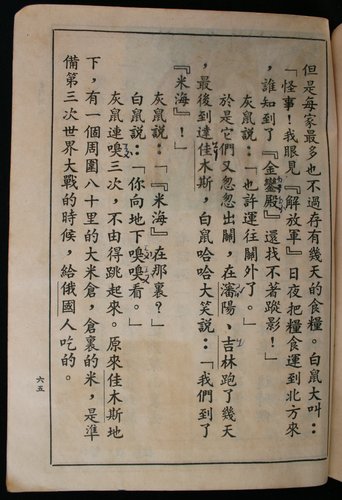 但是每家最多也不過存有幾天的食糧。白鼠大叫：
「怪事！我眼見『解放軍』日夜把糧食運到北方來
，誰知到了『金鑾殿』還找不著蹤影！」
灰鼠說：「也許運往關外了。」
於是它們又忽忽出關，在瀋陽、吉林跑了幾天
，最後到達佳木斯，白鼠哈哈大笑說：「我們到了
『米海』！」
灰鼠說：「『米海』在那裏？」
白鼠說：「你向地下嗅嗅看。」
灰鼠連嗅三次，不由得跳起來。原來佳木斯地
下，有一個周圍八十里的大米倉，倉裏的米，是準
備第三次世界大戰的時候，給俄國人吃的。
六五